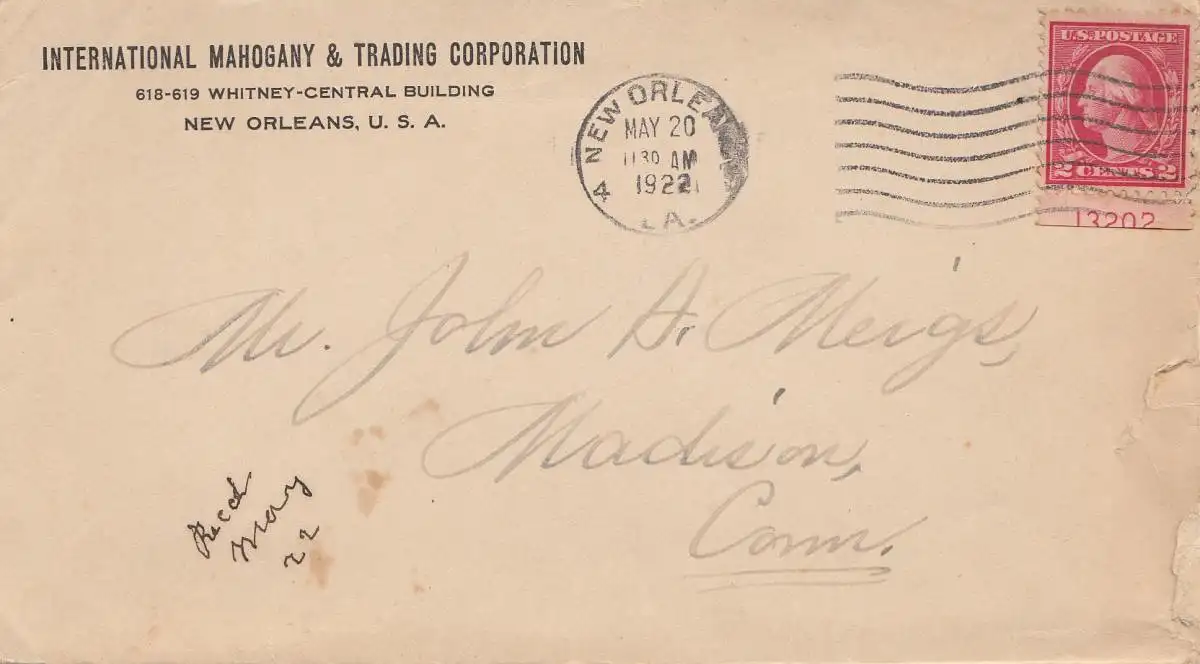 INTERNATIONAL MAHOGANY & TRADING CORPORATION
618-619 WHITNEY-CENTRAL BUILDING
NEW ORLEANS, U. S. A.
NEW ORLEANS
MAY 20
11 30 AM
1922
4
LA.
U.S. POSTAGE
2 CENTS 2
13202
Mr. John A. Meigs,
Madison,
Conn.
Recd
May
22